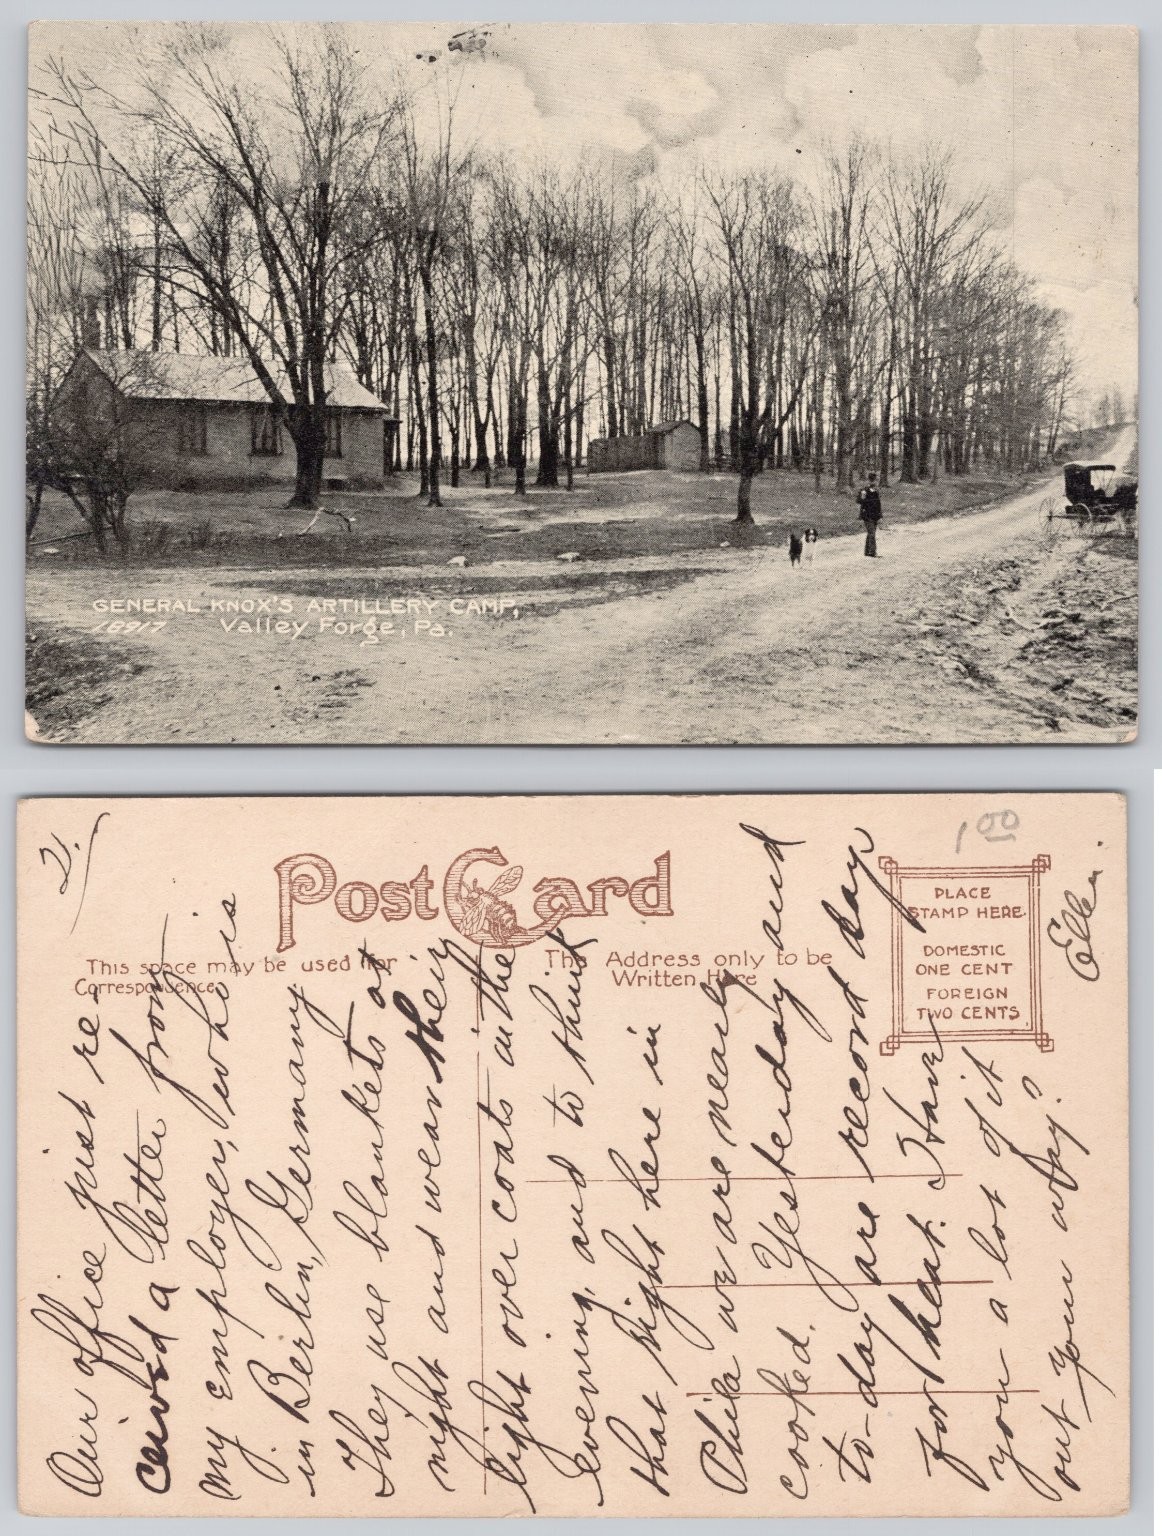 GENERAL KNOX'S ARTILLERY CAMP,
16917 Valley Forge, Pa.
2.
1 00
Post Card
This space may be used for
Correspondence
The Address only to be
Written Here
PLACE
STAMP HERE
DOMESTIC
ONE CENT
FOREIGN
TWO CENTS
Our office just re-
ceived a letter from
my employer, who is
in Berlin, Germany
They use blankets at
night and wear their
light over coats in the
evening, and to think
that right here in
Phila we are nearly
cooked. Yesterday and
to-day are record days
for heat. Have
you a lot of it
out your way?
Ellen.